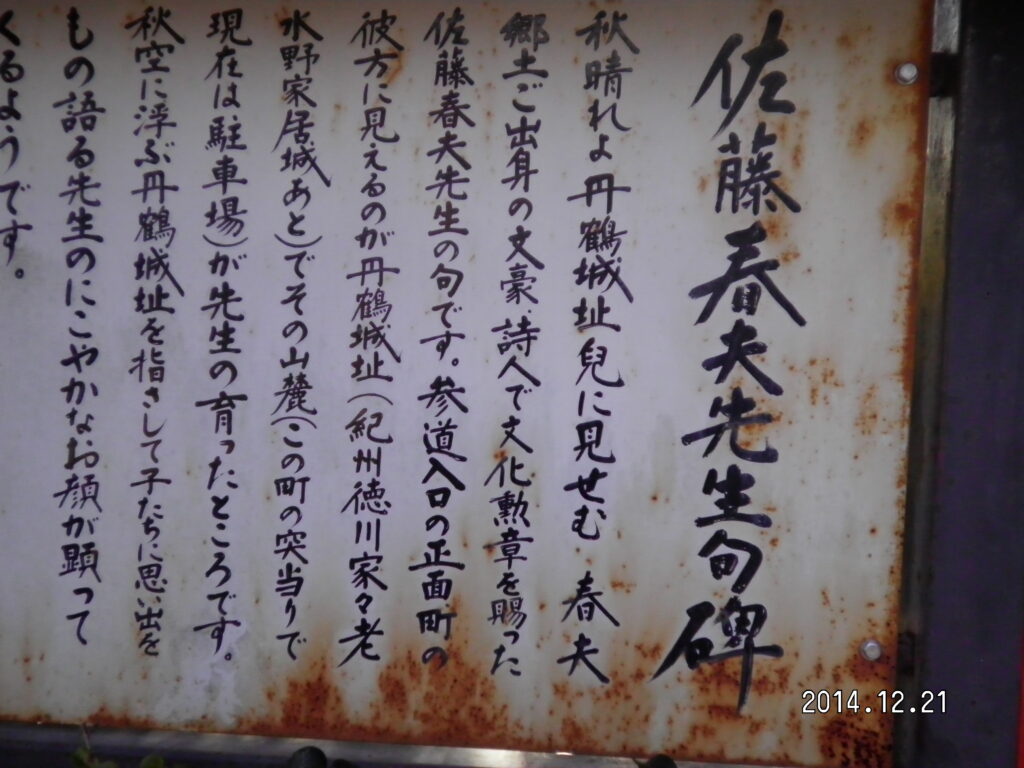 佐藤春夫先生句碑
秋晴れよ丹鶴城址兒に見せむ 春夫
郷土ご出身の文豪、詩人で文化勲章を賜った
佐藤春夫先生の句です。参道入口の正面町の
彼方に見えるのが丹鶴城址(紀州徳川家々老
水野家居城あと)でその山麓(この町の突当りで
現在は駐車場)が先生の育ったところです。
秋空に浮ぶ丹鶴城址を指さして子たちに思い出を
もの語る先生のにこやかなお顔が顕って
くるようです。
2014.12.21